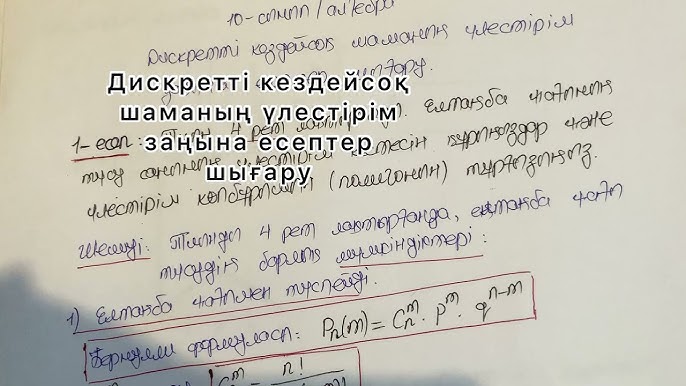 10-сынып / алгебра
Дискретті кездейсоқ шаманың үлестірім
Дискретті кездейсоқ
шаманың үлестірім
заңына есептер
шығару
1-есеп: Тиын 4 рет Елтаңба жағының
түсу санының үлестірім кестесін құрыңыздар және
үлестірім көпбұрышын (полигонын) тұрғызыңыз.
Шешуі: Тиынды 4 рет лақтырғанда, елтаңба жағы
түсудің барлық мүмкіндіктері:
1) Елтаңба жағымен түспейді.
Бернулли формуласы: Pn(m) = C_n^m · P^m · q^{n-m}
C_n^m = n!